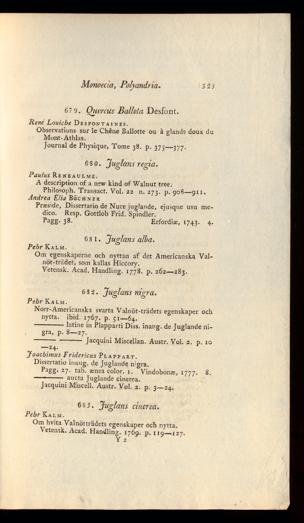 Monoecia, Polyandria. 323
679. Quercus Ballota Desfont.
René Louiche DESFONTAINES.
Observations sur le Chêne Ballotte ou à glands doux du
Mont-Athlas.
Journal de Physique, Tome 38. p. 375—377.
680. Juglans regia.
Paulus RENEAULME.
A description of a new kind of Walnut tree.
Philosoph. Transact. Vol. 22 n. 273. p. 908—911.
Andrea Elia BÜCHNER
Præside, Dissertatio de Nuce juglande, ejusque usu me-
dico. Resp. Gottlob Frid. Spindler.
Pagg. 38. Erfordiæ, 1743. 4.
681. Juglans alba.
Pehr KALM.
Om egenskaperne och nyttan af det Americanska Val-
nöt-trädet, som kallas Hiccory.
Vetensk. Acad. Handling. 1778. p. 262—283.
682. Juglans nigra.
Pehr KALM.
Norr-Americanska svarta Valnöt-trädets egenskaper och
nytta. ibid. 1767. p. 51—64.
——— latine in Plapparti Diss. inaug. de Juglande ni-
gra, p. 8—27.
——— Jacquini Miscellan. Austr. Vol. 2. p. 10
—24.
Joachimus Fridericus PLAPPART.
Dissertatio inaug. de Juglande nigra.
Pagg. 27. tab. ænea color. 1. Vindobonæ, 1777. 8.
——— aucta Juglande cinerea.
Jacquini Miscell. Austr. Vol. 2. p. 3—24.
683. Juglans cinerea.
Pehr KALM.
Om hvita Valnötträdets egenskaper och nytta.
Vetensk. Acad. Handling. 1769. p. 119—127.
Y 2